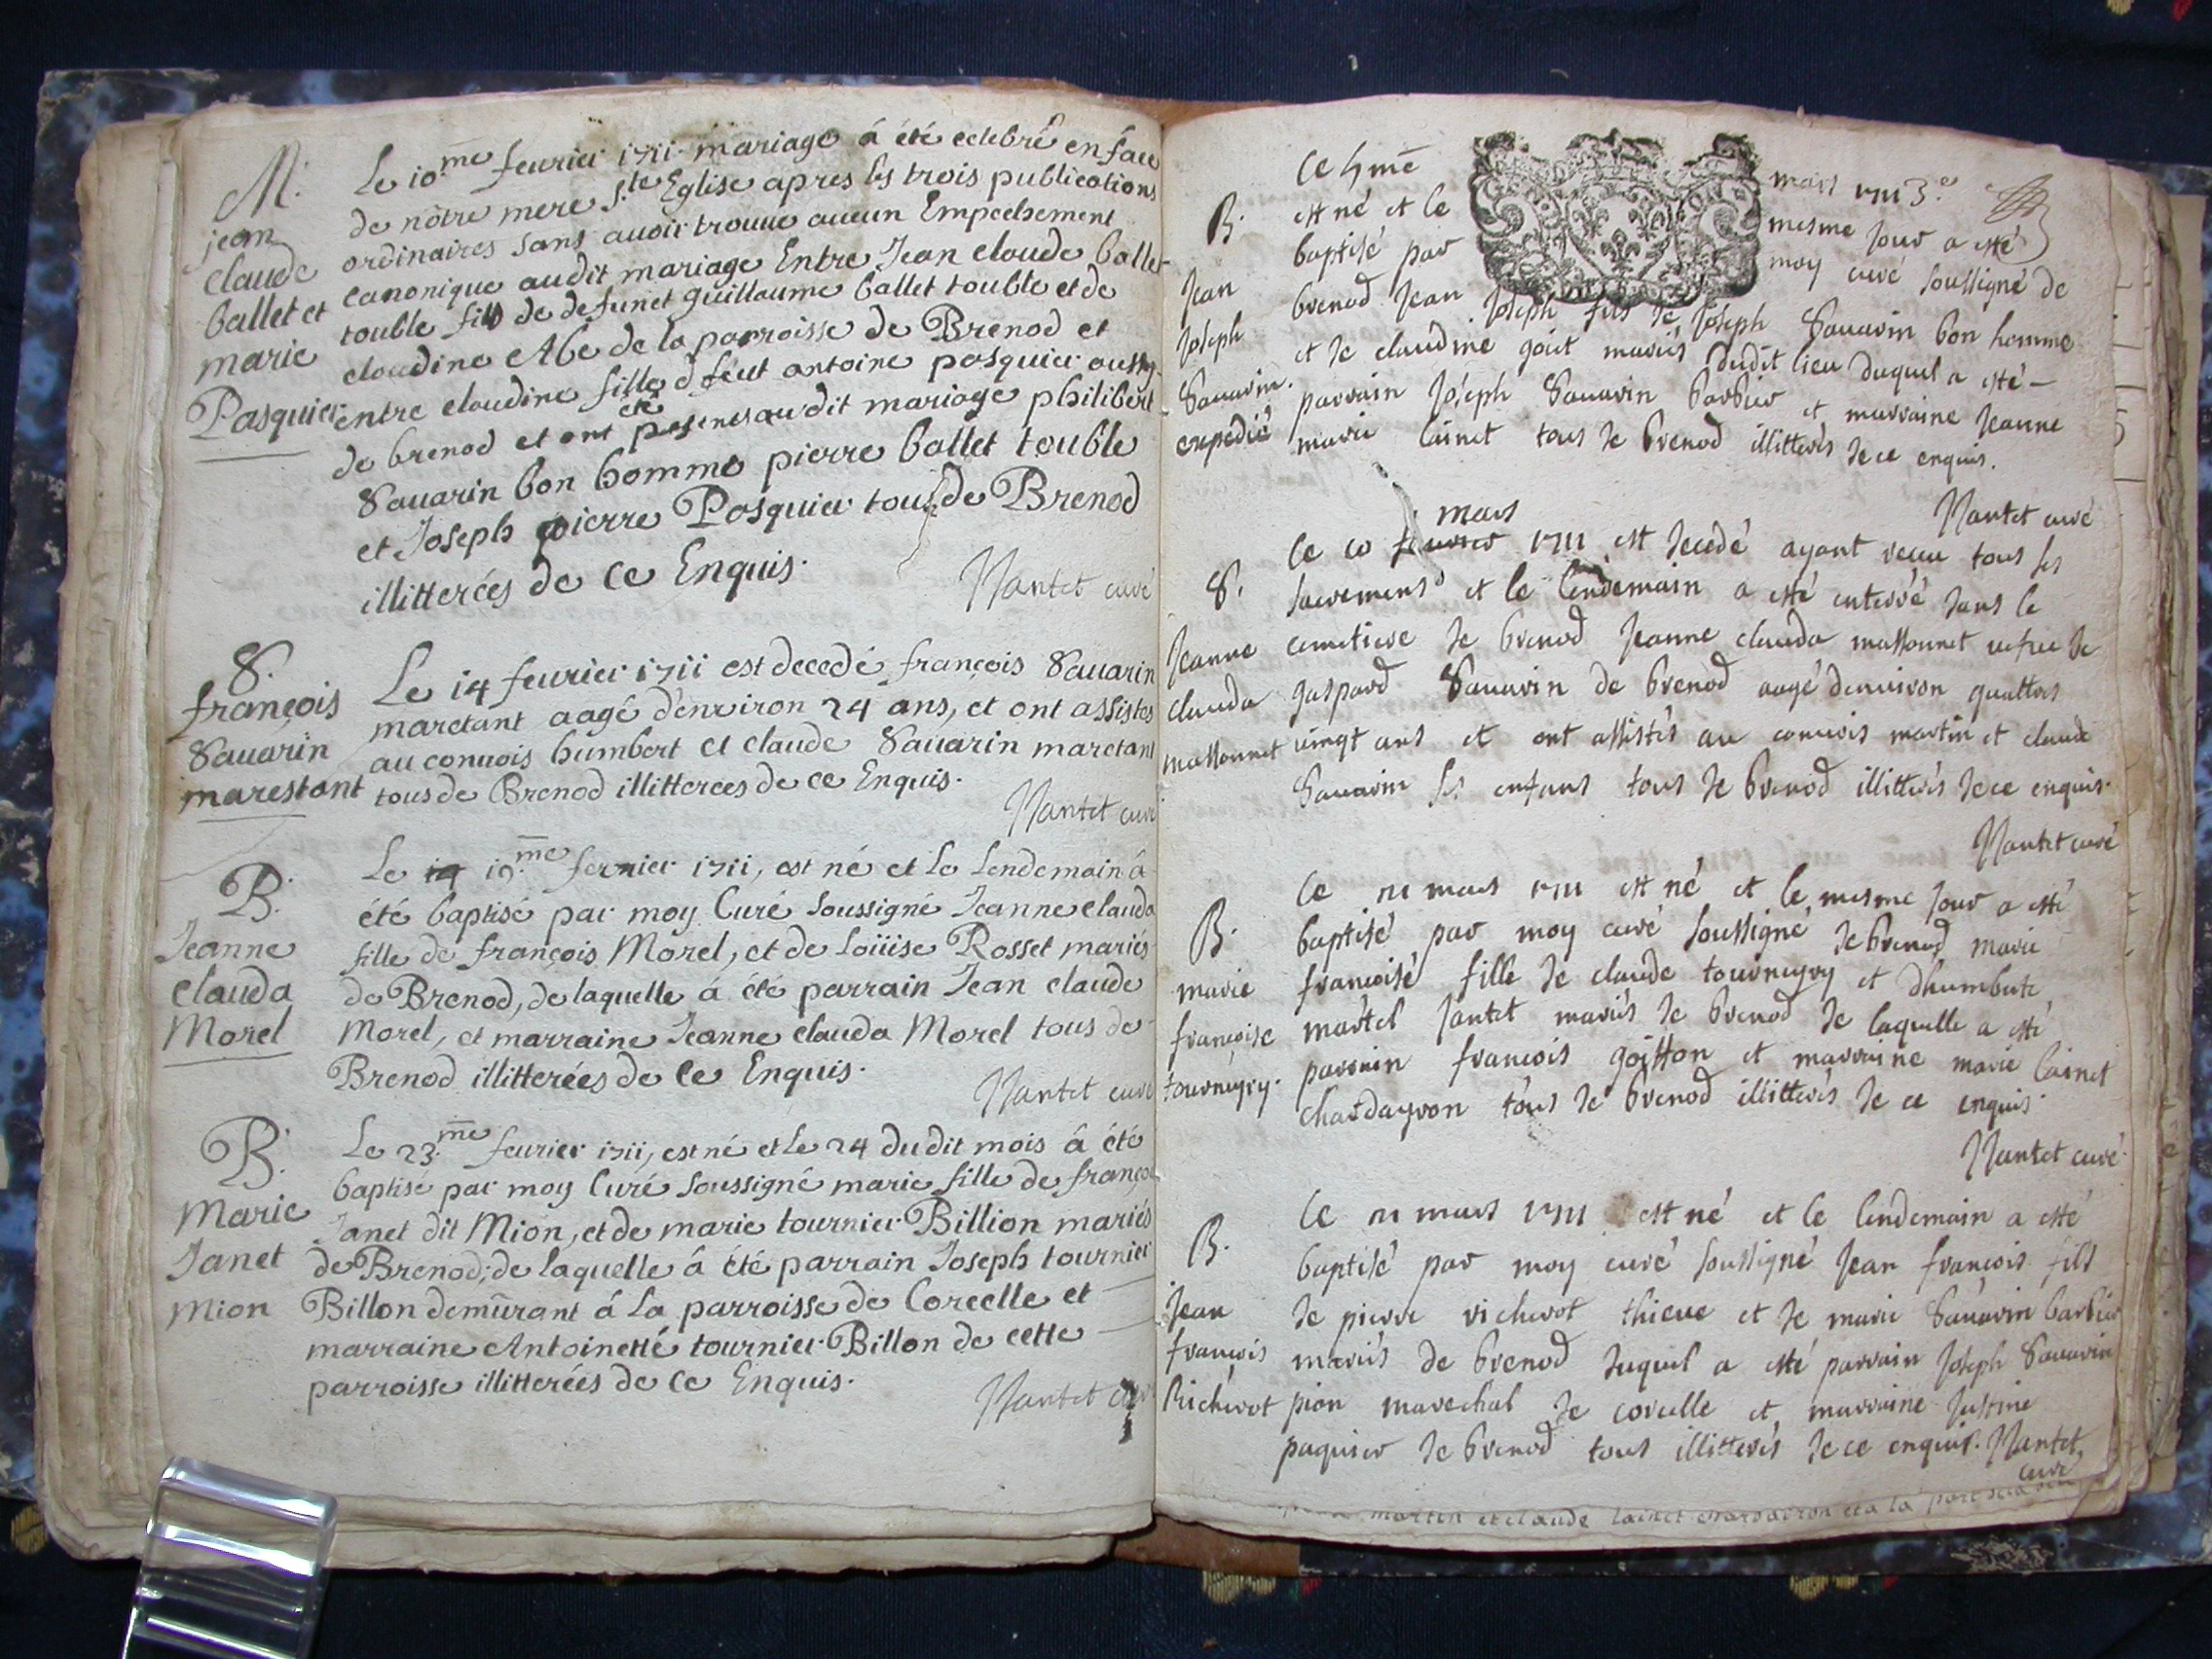 M.
jean
claude
ballet et
marie
Pasquier
Le 10.me feurier 1711 mariage á été celebré en face
de nôtre mere S.te Eglise apres les trois publications
ordinaires sans auoir trouue aucun Empechement
canonique audit mariage Entre Jean claude ballet
touble fils de defunct guillaume ballet touble et de
claudine Abé de la parroisse de Brenod et
entre claudine fille d feut antoine pasquier aussy
de brenod et ont été presents audit mariage philibert
Sauarin bon homme pierre ballet touble
et Joseph pierre Pasquier tous de Brenod
illitterées de ce Enquis.
Nantet curé
S.
françois
Sauarin
marestant
Le 14 feurier 1711 est decedé françois Sauarin
maretant aagé d'enuiron 24 ans, et ont assistes
au conuois humbert et claude Sauarin maretant
tous de Brenod illitterees de ce Enquis.
Nantet curé
B.
Jeanne
Clauda
Morel
Le 19.me feurier 1711, est né et le Lendemain á
été baptisé par moy Curé Soussigné Jeanne clauda
fille de françois Morel, et de Loüise Rosset mariés
de Brenod, de laquelle á été parrain Jean claude
Morel, et marraine Jeanne clauda Morel tous de
Brenod illitterées de Ce Enquis.
Nantet curé
B.
Marie
Janet
Mion
Le 23.me feurier 1711, est né et le 24 dudit mois á été
baptisé par moy Curé Soussigné marie fille de françois
Janet dit Mion, et de marie tournier Billion mariés
de Brenod; de laquelle á été parrain Joseph tournier
Billon demeurant á La parroisse de Corcelle et
marraine Antoinetté tournier Billon de cette
parroisse illitterées de Ce Enquis.
Nantet curé
B.
Jean
Joseph
Sauarin.
expedié
Ce 5me mars 1711 3.e
est né et le mesme Jour a esté
baptisé par moy curé soussigné de
brenod Jean Joseph fils de Joseph Sauarin bon homme
et de claudine goit mariés dudit lieu duquel a esté
parrain Joseph Sauarin barbier et marraine Jeanne
marie Cainet tous de brenod illitterés de ce enquis.
Nantet curé
S.
Jeanne
clauda
massonnet
mars
Ce 10 feurier 1711 est decedé ayant receu tous les
sacremens et le lendemain a esté enterré dans le
cimetiere de brenod Jeanne clauda massonnet vefue de
gaspard Sauarin de brenod aagé denuiron quattres
uingt ans et ont assistés au conuois martin et claude
Sauarin ses enfans tous de brenod illitterés de ce enquis.
Nantet curé
B.
marie
françoise
tournuyry.
Ce 11 mars 1711 est né et le mesme Jour a esté
baptisé par moy curé soussigné de brenod marie
francoise fille de claude tournuyry et dhumberte
martel Jantet mariés de brenod de laquelle a esté
parrain francois goitton et marraine marie Cainet
chardayron tous de brenod illitterés de ce enquis.
Nantet curé
B.
Jean
francois
Richerot
Ce 11 mars 1711 est né et le lendemain a esté
baptisé par moy curé soussigné Jean francois fils
de pierre richerot thieue et de marie Sauarin barbier
mariés de brenod duquel a esté parrain Joseph Sauarin
pion marechal de corcelle et marraine Justine
paquier de brenod tous illitterés de ce enquis. Nantet
curé
martin et claude Cainet chardairon et a la